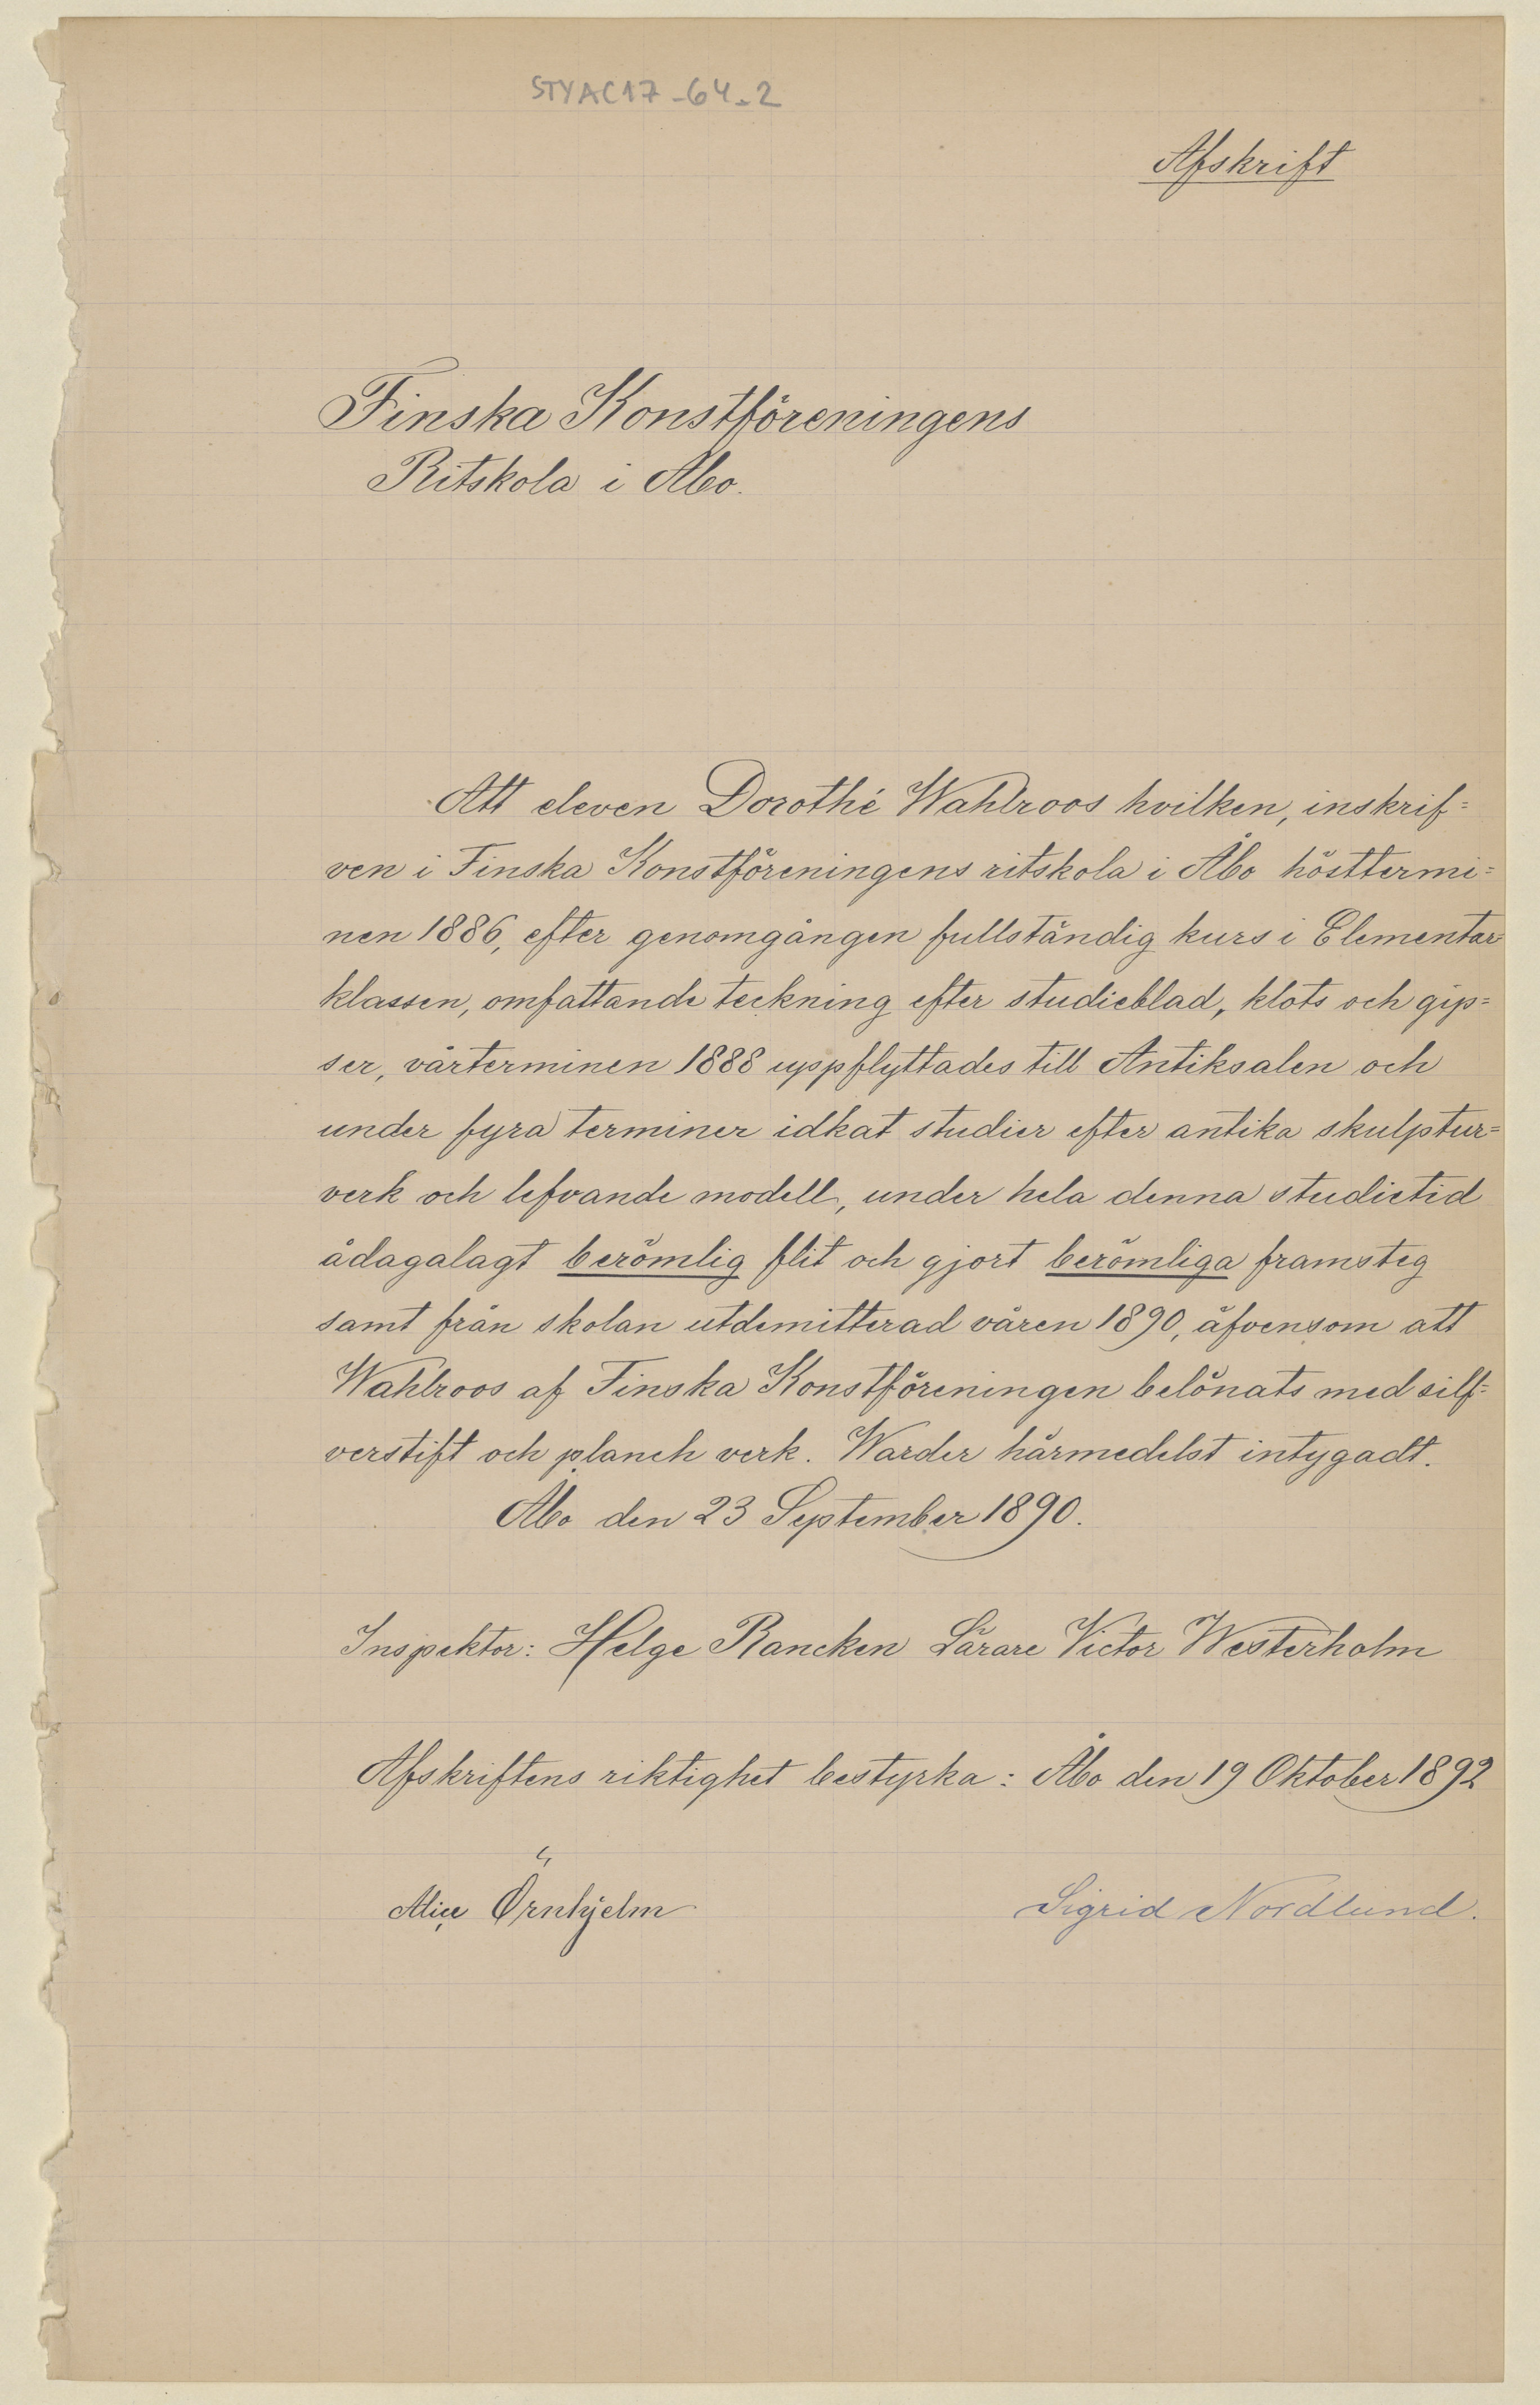 STYAC17-64-2
Afskrift
Finska Konstföreningens
Ritskola i Åbo.
Att eleven Dorothé Wahlroos hvilken, inskrif=
ven i Finska Konstföreningens ritskola i Åbo hösttermi=
nen 1886, efter genomgången fullständig kurs i Elementar=
klassen, omfattande teckning efter studieblad, klots och gip=
ser, vårterminen 1888 uppflyttades till Antiksalen och
under fyra terminer idkat studier efter antika skulptur=
verk och lefvande modell, under hela denna studietid
ådagalagt berömlig flit och gjort berömliga framsteg
samt från skolan utdemitterad våren 1890, äfvensom att
Wahlroos af Finska Konstföreningen belönats med silf=
verstift och planch verk. Warder härmedelst intygadt.
Åbo den 23 September 1890.
Inspektor: Helge Rancken Lärare Victor Westerholm
Afskriftens riktighet bestyrka: Åbo den 19 Oktober 1892
Alice Örnhjelm
Sigrid Nordlund.